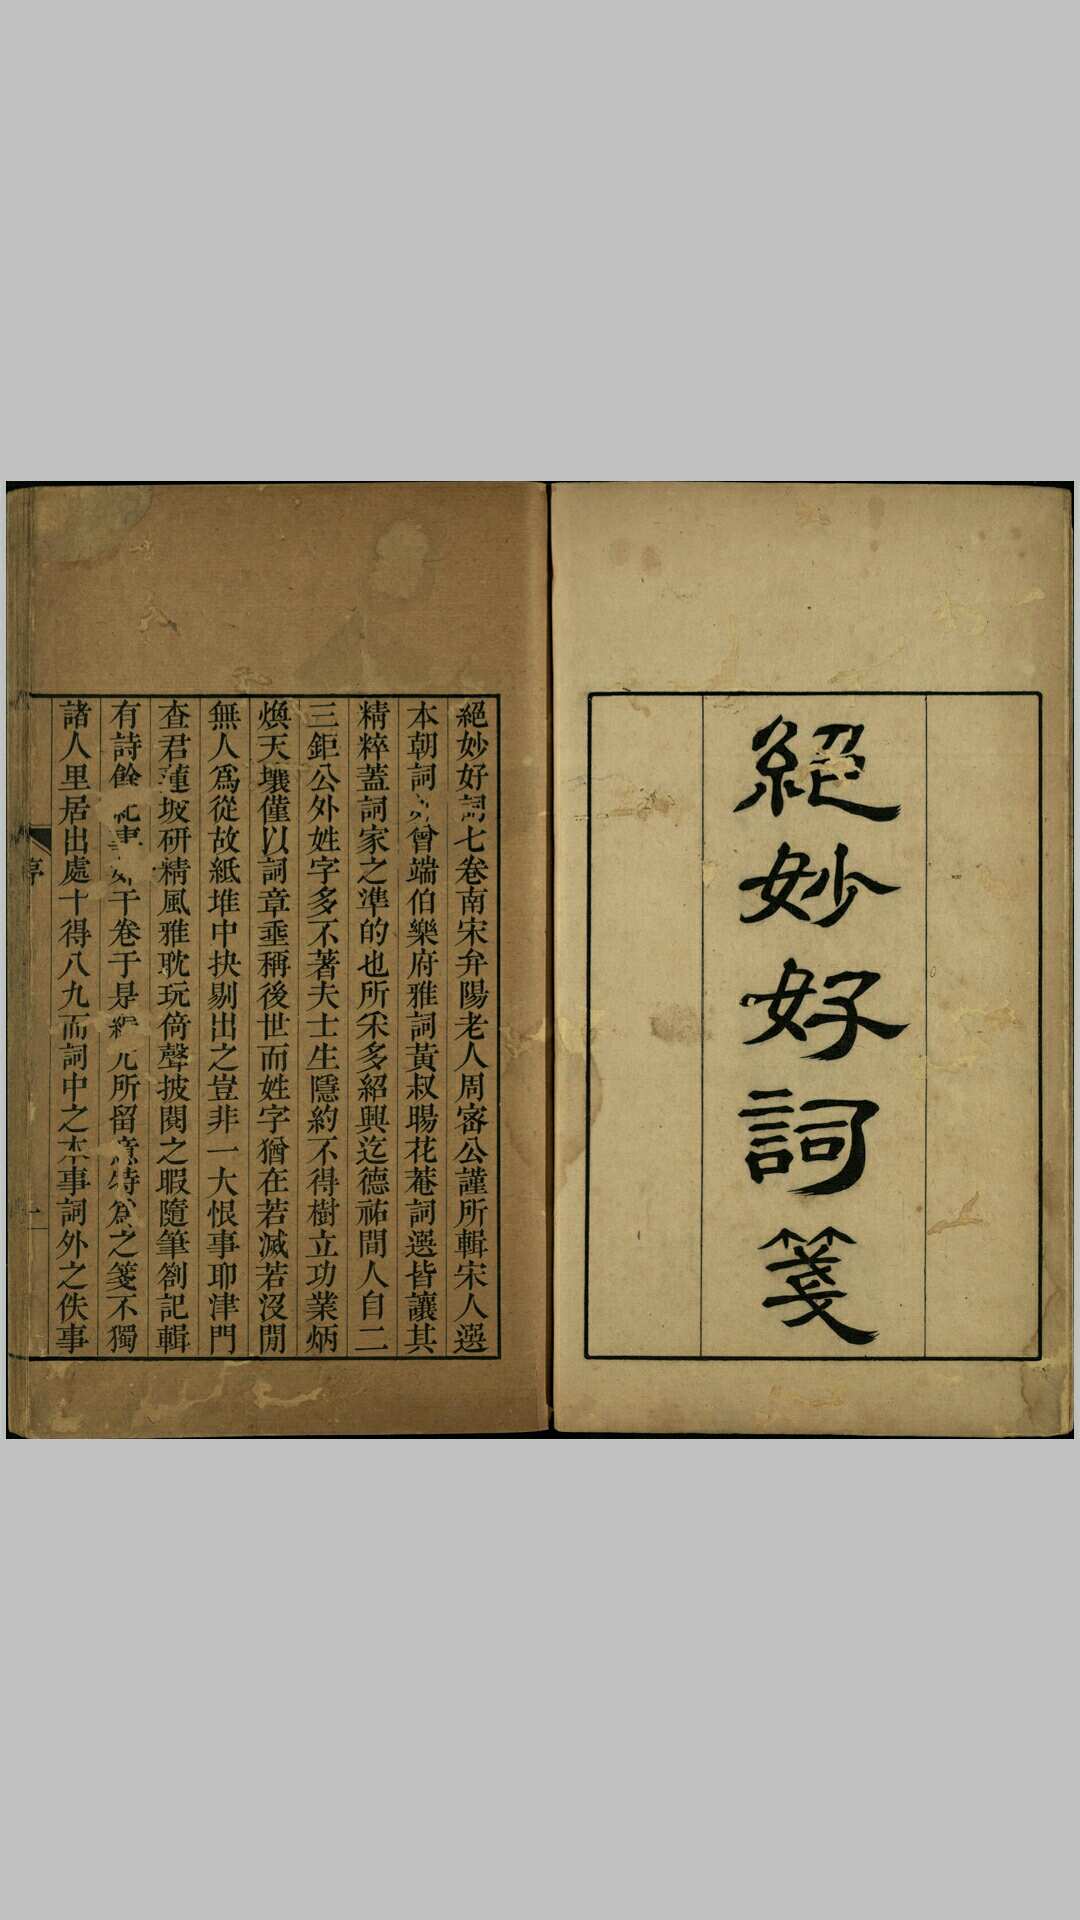 絕妙好詞箋
絕妙好詞七卷南宋弁陽老人周密公謹所輯宋人選
本朝詞曾端伯樂府雅詞黃叔暘花菴詞選皆讓其
精粹蓋詞家之準的也所采多紹興迄德祐間人自二
三鉅公外姓字多不著夫士生隱約不得樹立功業炳
煥天壤僅以詞章垂稱後世而姓字猶在若滅若沒閒
無人爲從故紙堆中抉剔出之豈非一大恨事耶津門
查君蓮坡研精風雅耽玩倚聲披閱之暇隨筆劄記輯
有詩餘事干卷于是所留意特爲之箋不獨
諸人里居出處十得八九而詞中之本事詞外之佚事
序